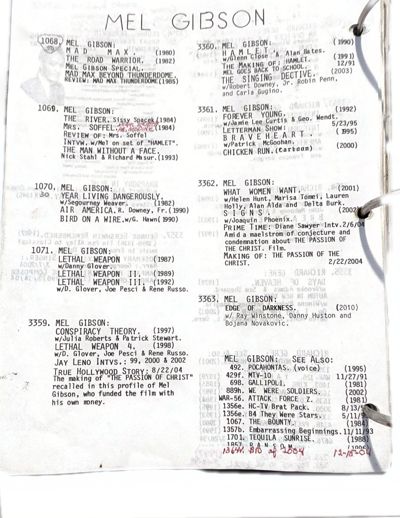 MEL GIBSON
1068. MEL GIBSON:
MAD MAX. (1980)
THE ROAD WARRIOR. (1982)
MEL GIBSON SPECIAL.
MAD MAX BEYOND THUNDERDOME.
REVIEW: MAD MAX THUNDERDOME. (1985)
1069. MEL GIBSON:
THE RIVER. Sissy Spacek (1984)
MRS. SOFFEL (1984)
REVIEW OF: Mrs. Soffel
INTVW. w/Mel on set of "HAMLET".
THE MAN WITHOUT A FACE.
Nick Stahl & Richard Masur. (1993)
1070. MEL GIBSON:
YEAR LIVING DANGEROUSLY.
w/Segourney Weaver. (1982)
AIR AMERICA, R. Downey, Fr. (1990)
BIRD ON A WIRE. w/G. Hawn( 1990)
1071. MEL GIBSON:
LETHAL WEAPON (1987)
w/Danny Glover.
LETHAL WEAPON II. (1989)
LETHAL WEAPON III. (1992)
w/D. Glover, Joe Pesci & Rene Russo.
3359. MEL GIBSON:
CONSPIRACY THEORY. (1997)
w/Julia Roberts & Patrick Stewart.
LETHAL WEAPON 4. (1998)
w/D. Glover, Joe Pesci & Rene Russo.
JAY LENO INTVS.: 99, 2000 & 2002
TRUE HOLLYWOOD STORY: 8/22/04
The making of "THE PASSION OF CHRIST"
recalled in this profile of Mel
Gibson, who funded the film with
his own money.
3360. MEL GIBSON: (1990)
HAMLET.
w/Glenn Close & Alan Bates.
THE MAKING OF: HAMLET. (1991)
MEL GOES BACK TO SCHOOL. 12/93
THE SINGING DECTIVE. (2003)
w/Robert Downey, Jr. Robin Penn,
and Carla Gugino.
3361. MEL GIBSON: (1992)
FOREVER YOUNG.
w/Jamie Lee Curtis & Geo. Wendt.
LETTERMAN SHOW: 5/23/95
BRAVEHEART. (1995)
w/Patrick McGoohan.
CHICKEN RUN. (Cartoon) (2000)
3362. MEL GIBSON:
WHAT WOMEN WANT. (2001)
w/Helen Hunt, Marisa Tomei, Lauren
Holly, Alan Alda and Delta Burk.
SIGNS. (2002)
w/Joaquin Phoenix.
PRIME TIME: Diane Sawyer Intv. 2/6/04
Amid a maelstrom of conjecture and
condemnation about THE PASSION OF
THE CHRIST. Film.
MAKING OF: THE PASSION OF THE
CHRIST. 2/22/2004
3363. MEL GIBSON:
EDGE OF DARKNESS. (2010)
w/ Ray Winstone, Danny Huston and
Bojana Novakovic.
MEL GIBSON: SEE ALSO:
492. POCAHONTAS. (voice) (1995)
429f. MTV-10 11/27/91
698. GALLIPOLI. (1981)
889h. WE WERE SOLDIERS. (2002)
WAR-56. ATTACK FORCE Z. (1981)
1356e. HC-TV Brat Pack. 8/13/
1356e. 84 They Were Stars. 5/11/
1067. THE BOUNTY. (1984)
1357b. Embarrassing Beginnings. 11/11/93
1701. TEQUILA SUNRISE. (1988)
1957. RANSOM. (1996)
1364k. BIO of 2004 12-18-04